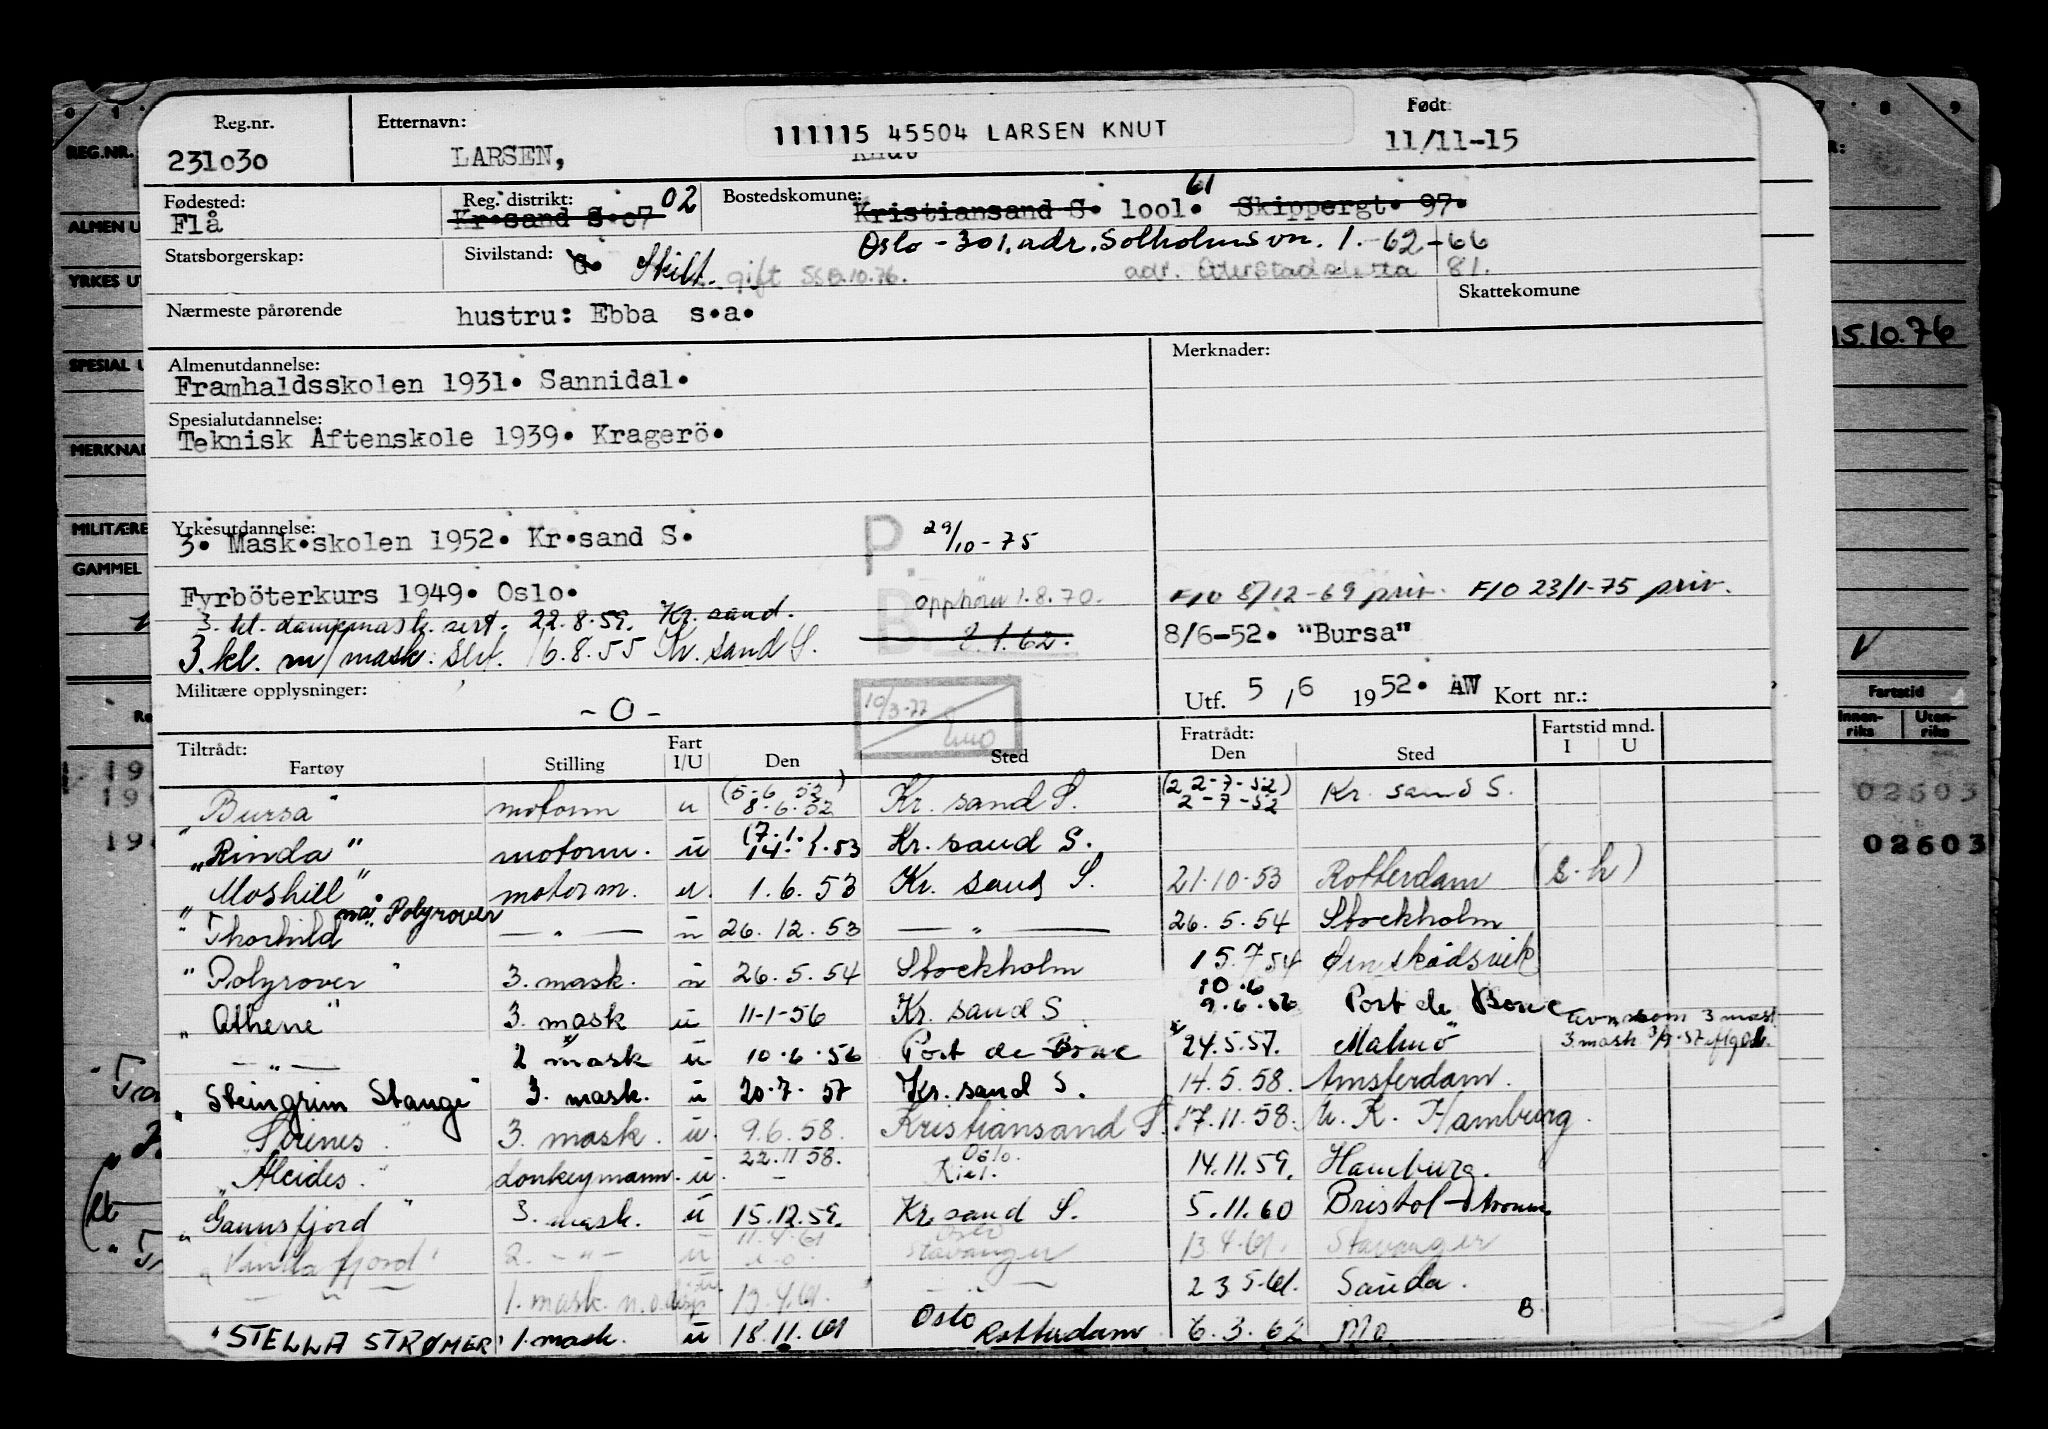 Reg.nr. Etternavn: 111115 45504 LARSEN KNUT Født:
231o3o LARSEN, 11/11-15
Fødested: Reg. distrikt: 02 Bostedskomune: 61
Flå Kr.sand S.o7 Kristiansand S. 1ool. Skippergt. 97.
Oslo - 301. adr. Solholmsvn. 1. -62-66
Statsborgerskap: Sivilstand: G. Skilt. gift SSB.10.76. adr. 81.
Skattekomune
Nærmeste pårørende hustru: Ebba s.a.
15.10.76
Almenutdannelse: Merknader:
Framhaldsskolen 1931. Sannidal.
Spesialutdannelse:
Teknisk Aftenskole 1939. Kragerö.
Yrkesutdannelse:
3. Mask.skolen 1952. Kr.sand S. P. 29/10-75
Fyrböterkurs 1949. Oslo. B opphører 1.8.70. F/O 8/12-69 priv. F/O 23/1-75 priv.
3. kl. dampmask. sert. 22.8.59. Kr. sand.
3. kl. m/mask. sert. 16.8.55 Kr. sand S. 2.1.62. 8/6-52. "Bursa"
Militære opplysninger: - O - 10/3-77 Utf. 5/6 1952. AW Kort nr.:
Tiltrådt: Fratrådt: Fartstid mnd.
Fartøy Stilling Fart I/U Den Sted Den Sted I U
"Bursa" motorm u (5-6 52) 8.6.52 Kr. sand S. (22-7-52) 2-7-52 Kr. sand S.
"Rinda" motorm. u (7.1. 14.1.53 Kr. sand S.
"Moshill" motorm. u. 1.6.53 Kr. sand S. 21.10.53 Rotterdam (s.h)
"Thorhild nå: Polyrover — " — u 26.12.53 — " — 26.5.54 Stockholm
"Polyrover" 3. mask. u 26.5.54 Stockholm 15.7.54 Ørnskødsvik
"Athene" 3. mask u 11-1-56 Kr. sand S. 10.6 9.6.56 Port de Bouc
— " — 2 mask u 10.6.56 Port de Bouc 24.5.57. Malmö
"Steingrim Stange" 3. mask. u 20.7.57 Kr. sand S. 14.5.58. Amsterdam.
"Sirenes" 3. mask. u. 9.6.58. Kristiansand S. 17.11.58. Hamburg.
"Alcides." donkeymann. u. 22.11 58. - Oslo. Kiel. 14.11.59. Hamburg.
"Gannsfjord" 3. mask. u 15.12.59. Kr sand S. 5.11.60 Bristol
2. - " - u 11.4.61 Stavanger 13.4.61. Stavanger
— " — 1. mask. 13.4.61. — " — 23 5.61. Sauda.
"STELLA STRØMER" 1. mask. u 18.11.61 Oslo Rotterdam 6.3.62 Mo B.
REG.NR.
ALMEN U
YRKES U
SPESIAL U
MERKNAD
MILITÆRE
GAMMEL
Fartstid
Innen-riks Uten-riks
02603
02603